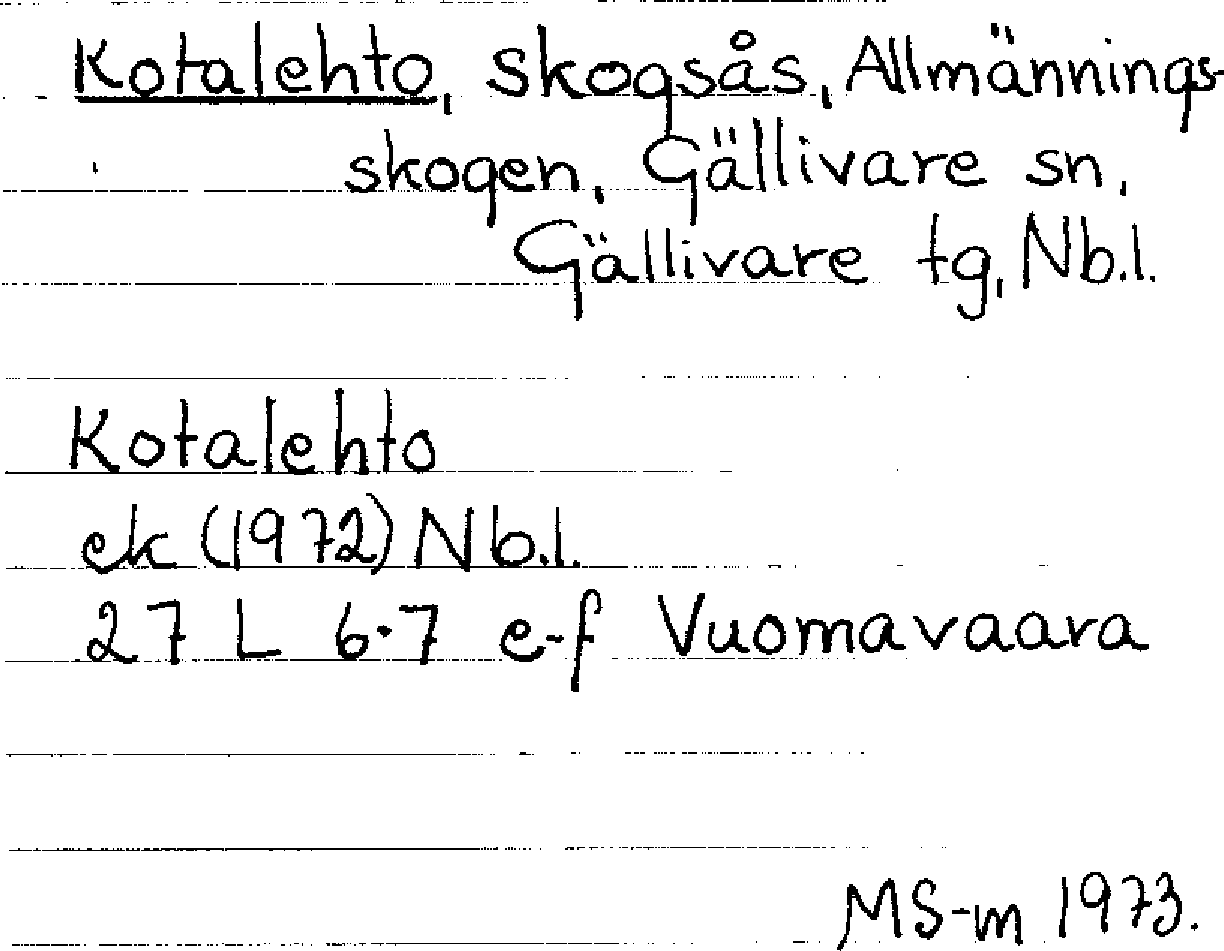 Kotalehto, skogsås, Allmännings-
skogen, Gällivare sn,
Gällivare tg, Nb.l.
Kotalehto
ek (1972) Nb.l.
27 L 6-7 e-f Vuomavaara
MS-m 1973.